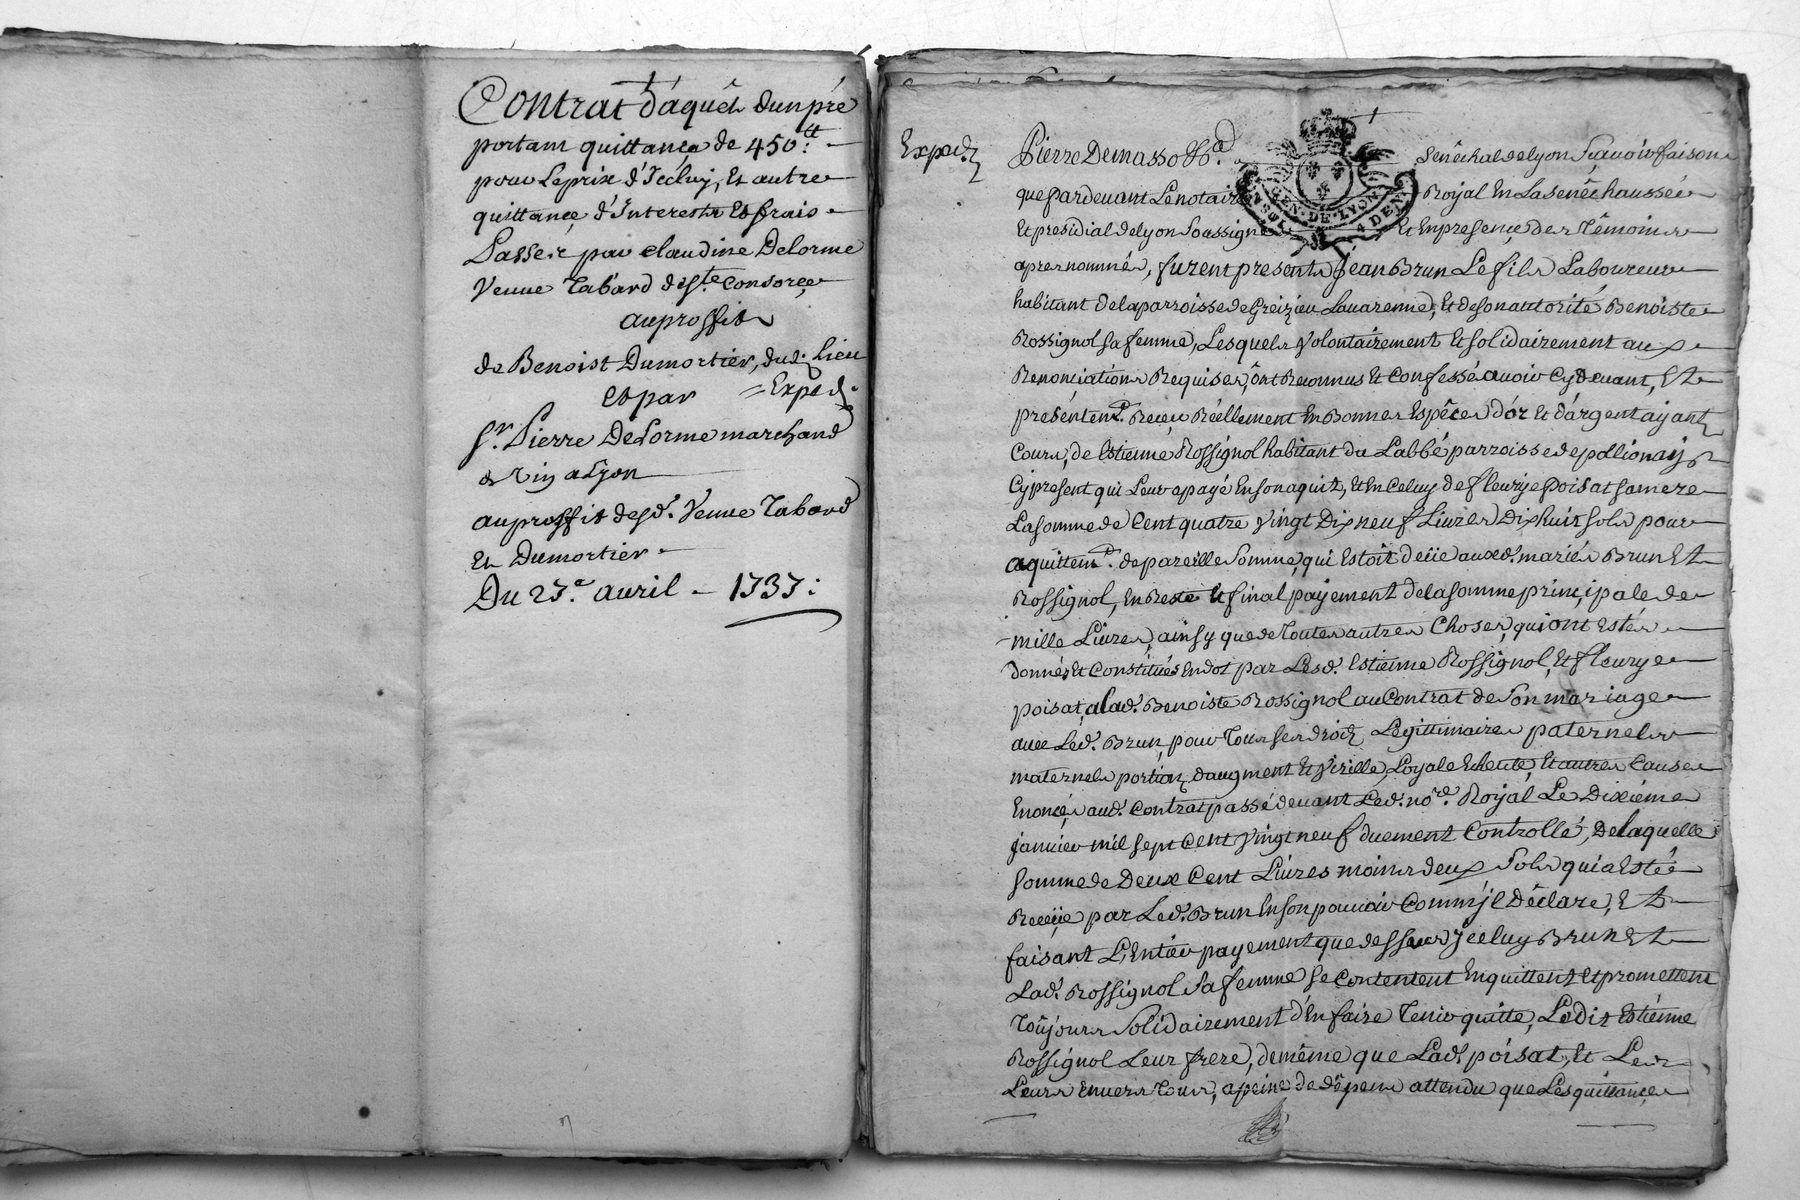 Contrat d'aquêt d'un pré
portant quittance de 450.tt
pour Le prix d'Jceluy, Et autre
quittance d'Interests Et frais
Passée par claudine Delorme
Veuve Tabard de Ste. Consorce
au proffit
de Benoist Dumortier, dud. Lieu
Et par = Exped.
Sr. Pierre Delorme marchand
de Vin a Lyon
au proffit desd. Veuve Tabard
Et Dumortier
Du 23.e avril - 1737.
Exped.
Pierre Demasso &a. Senêchal de Lyon Sçavoir faisons
que pardevant Le notaire Royal En La Senêchaussée
Et présidial de Lyon Soussigné Et En presence des Têmoins
apres nommés, furent presents Jean Brun Le fils Laboureur
habitant de la parroisse de Greizieu Lavarenne, Et de son autorité Benoiste
Rossignol sa femme, Lesquels Volontairement Et solidairement aux
Renonciations Requises, ônt Reconnus Et Confessé avoir Cy devant, Et
présentemt. Reçeu Réellement En Bonnes Espêces d'or Et d'argent ayant
Cours, de Estienne Rossignol habitant du Labbé parroisse de pollionay
Cy present qui Leur a payé En son aquit, Et En Celuy de fleurye poisat sa mere
La somme de Cent quatre Vingt Dix neuf Livres Dix huit sols pour
aquittemt. de pareille Somme, qui Estoit deüe auxd. mariés Brun Et
Rossignol, En Reste Et final payement de la somme principale de
mille Livres, ainsy que de Toutes autres Choses, qui ont Estés
donnés Et Constitués En dot par Lesd. Estienne Rossignol, Et fleurye
poisat, a lad. Benoiste Rossignol au Contrat de Son mariage
avec Led. Brun, pour Tous ses droits Legittimaires paternels
maternels portion d'augment Et Virille, Loyale Echeute, Et autres Causes
Enoncés aud. Contrat passé devant Led. nore. Royal Le Dixiéme
janvier mil sept Cent Vingt neuf duement Controllé, De laquelle
somme de Deux Cent Livres moins deux Sols qui a Estée
Reçeüe par Led. Brun En son pouvoir Comm'jl Déclare, Et
faisant L'Entier payement que dessus Jceluy Brun Et
Lad. Rossignol Sa femme se Contentent En quittent Et promettent
Toûjours Solidairement d'En faire Tenir quitte, Ledit Estienne
Rossignol Leur frere, de même que Lad. poisat, Et Les
Leurs Envers Tous, a peine de dêpens attendu que Les quittances